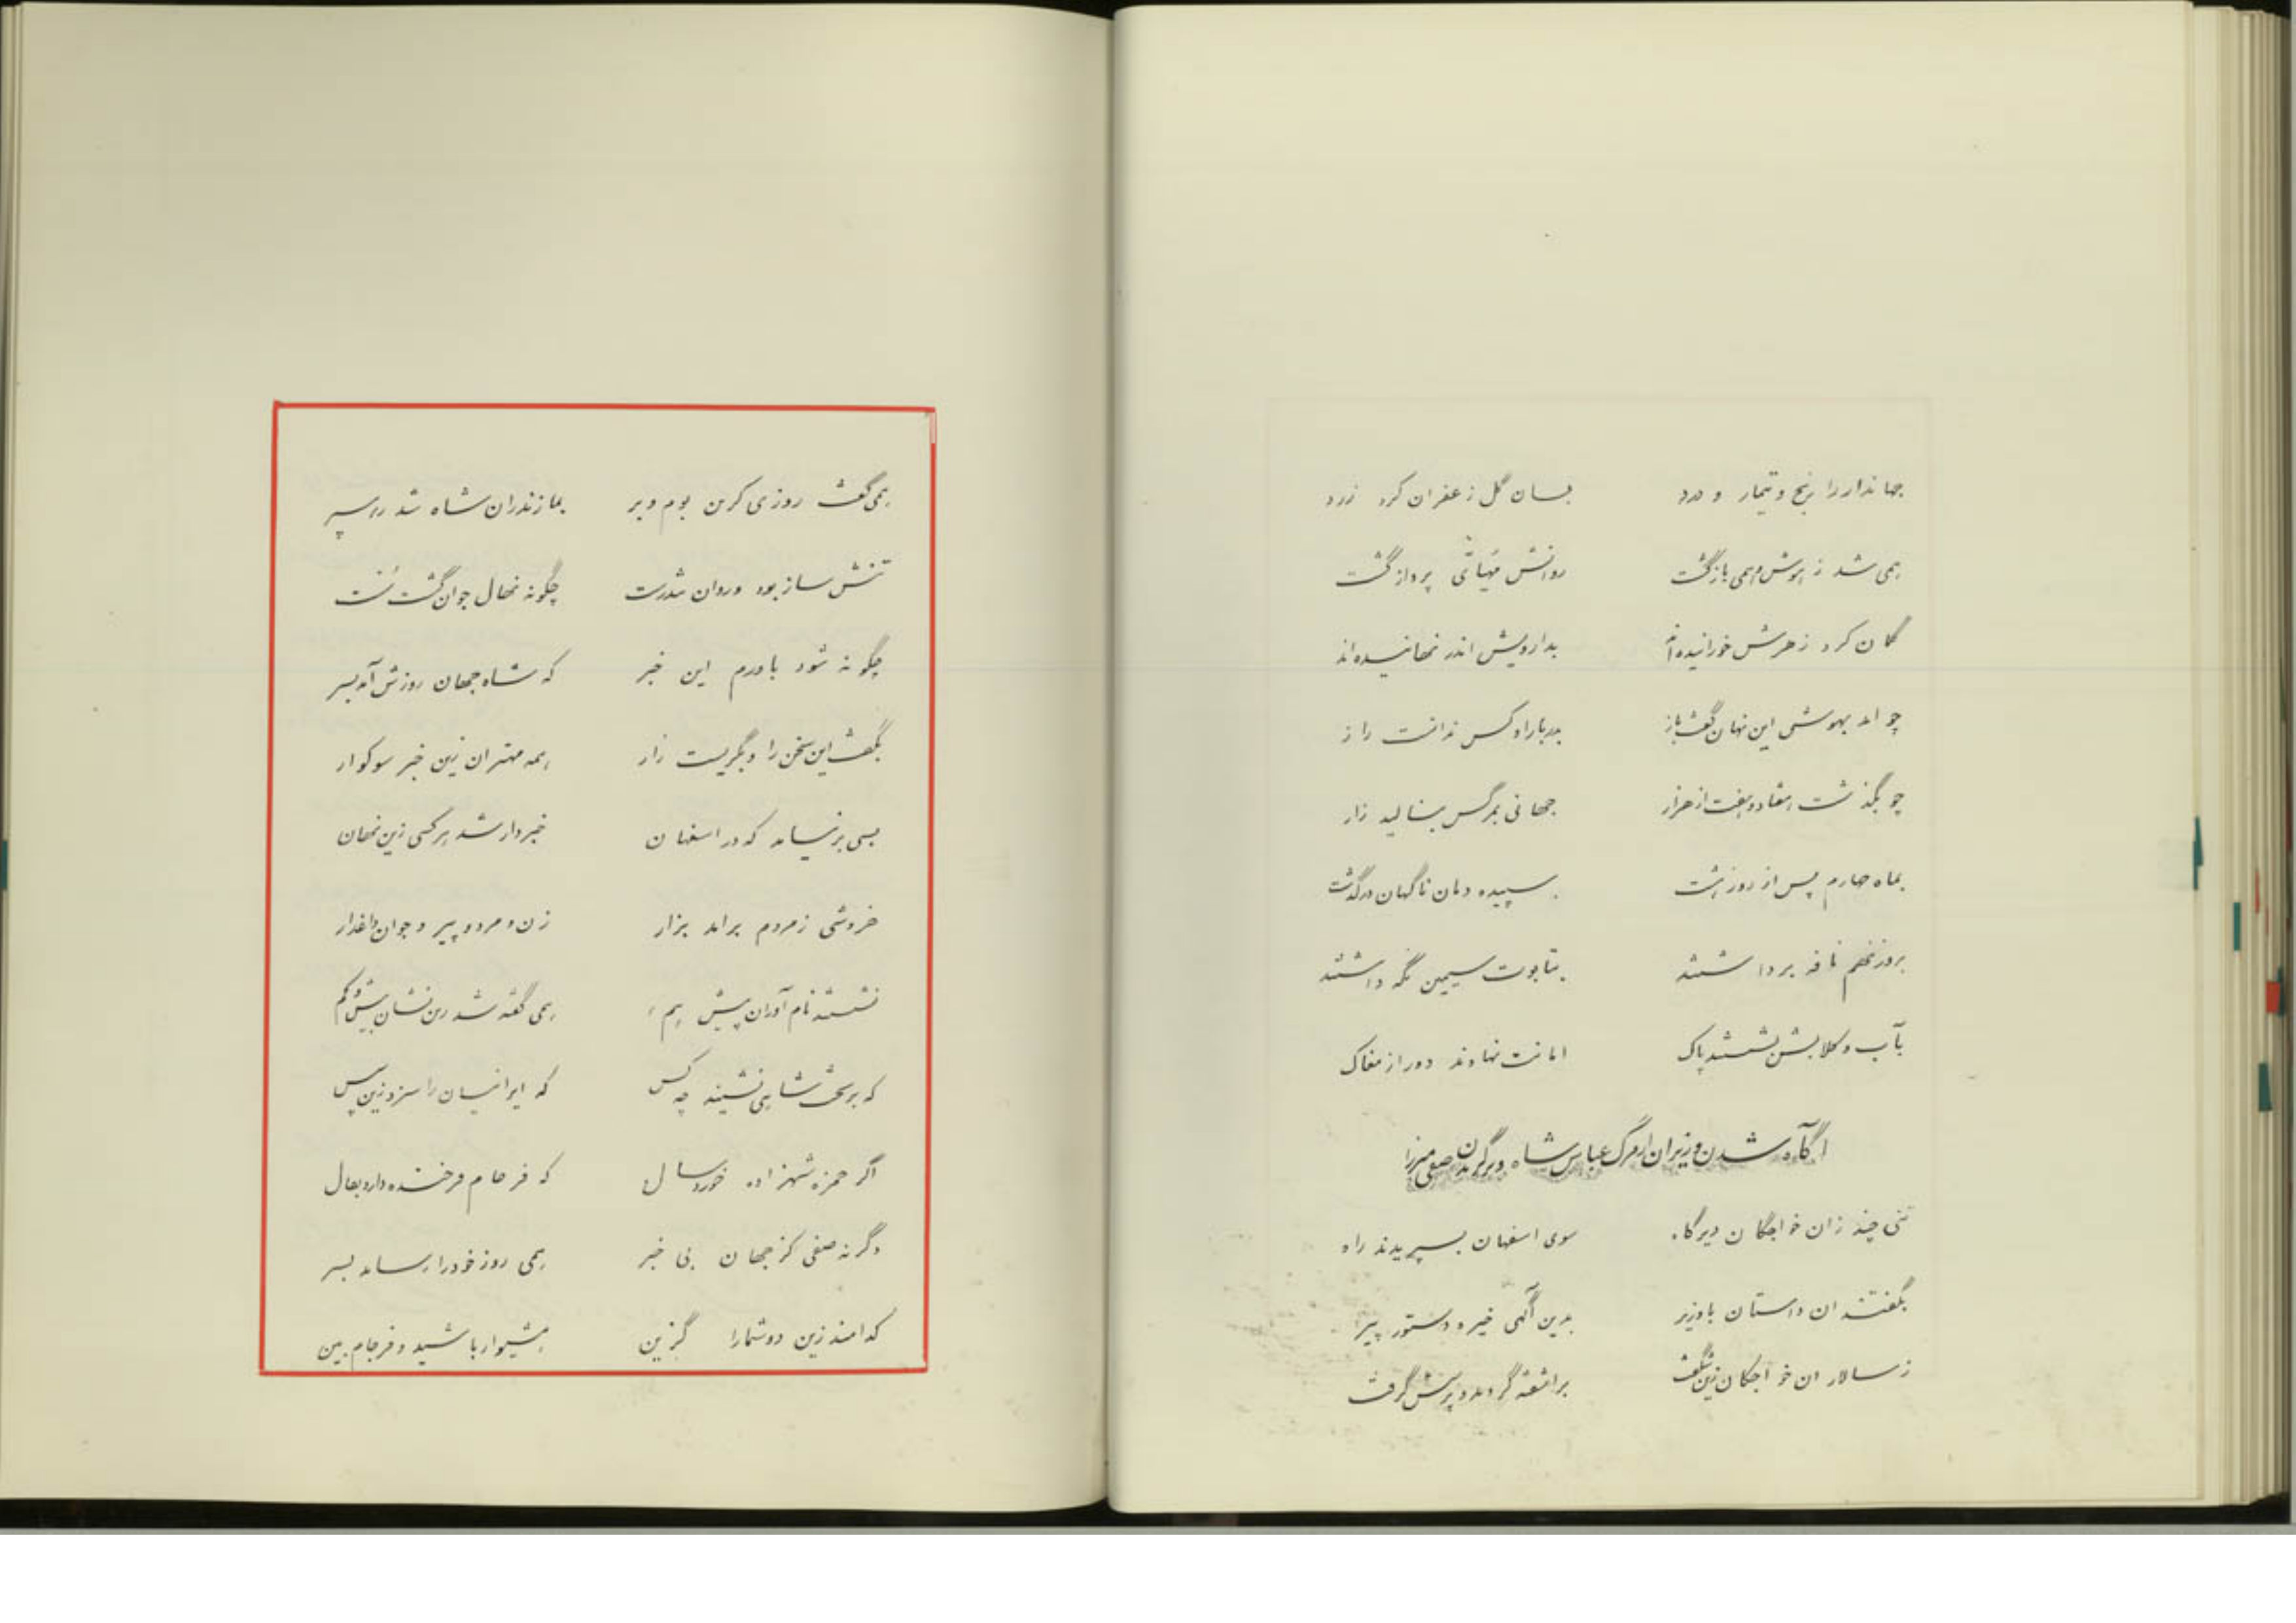 جهاندار را رنج و تیمار و درد بسان گل زعفران کرد زرد
همی شد ز هوش و همی بازگشت روانش مهیای پرواز گشت
گمان کرد زهرش خورانیده‌اند بدارویش اندر نهانیده‌اند
چو آمد بهوش این نهان گفت باز بدربار او کس ندانست راز
چو بگذشت هفتاد و هفت از هزار جهانی بمرگش بنالید زار
بماه چارم پس از روز هشت سپیده دمان ناگهان درگذشت
بروز نهم نافه برداشتند بتابوت سیمین نگه داشتند
بآب و گلابش بشستند پاک امانت نهادند دور از مغاک
آگاه شدن وزیران از مرگ عباس شاه و برگزیدن صفی میرزا
تنی چند زان خواجگان دیرگاه سوی اسفهان بسپریدند راه
بگفتند آن داستان با وزیر بدین آگهی خیره دستور پیر
ز سالار آن خواجگان زین شگفت برآشفته گردید و پرسش گرفت
همی گفت روزی کزین بوم و بر بمازندران شاه شد ره سپر
تنش ساز بود و روان تندرست چگونه نهال جوان گشت سست
چگونه شود باورم این خبر که شاه جهان روزش آمد بسر
بگفت این سخن را و بگریست زار همه مهتران زین خبر سوکوار
بسی برنیامد که در اسفهان خبردار شد هر کسی زین نهان
خروشی ز مردم برآمد بزار زن و مرد و پیر و جوان داغدار
نشستند نام آوران پیش هم همی گفته شد زین نشان بیش و کم
که بر تخت شاهی نشیند چه کس که ایرانیان را سزد زین سپس
اگر حمزه شهزاده خوردسال که فرجام فرخنده دارد بفال
دگر نه صفی کز جهان بی خبر همی روز خود را رساند بسر
کدامند زین دو شما را گزین هشیوار باشید و فرجام بین